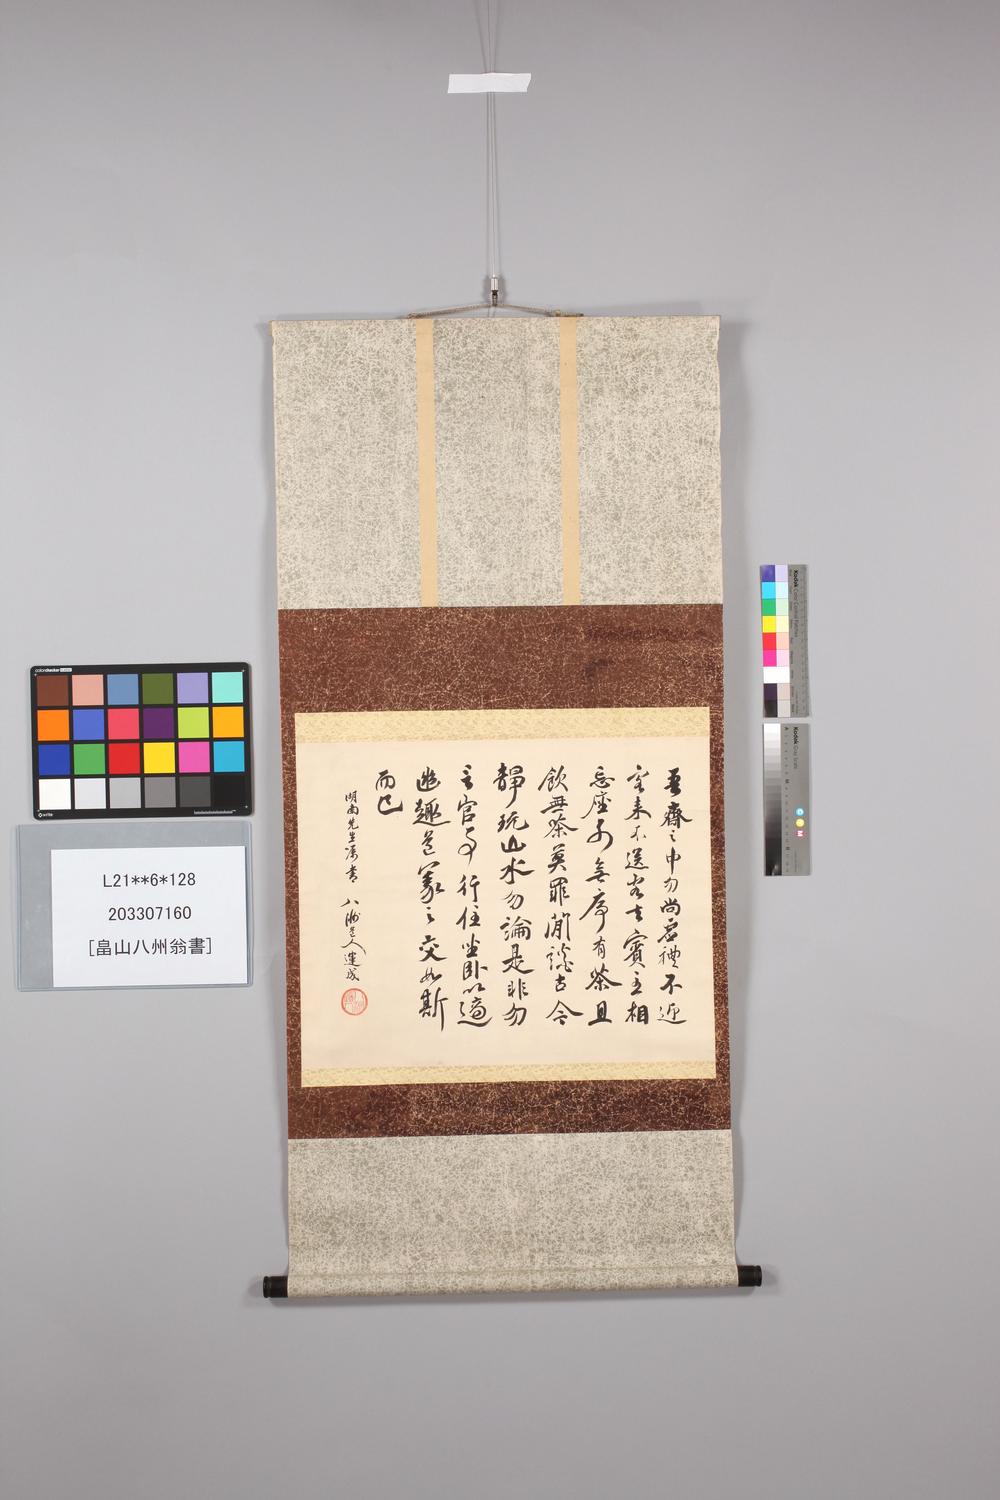 吾齋之中勿尚虚禮不迎
客来不送客去賓主相
忘座列無序有茶且
飲無茶莫罪閑談古今
靜玩山水勿論是非勿
言官事行住坐臥以適
幽趣道義之交如斯
而已
湖南先生属書 八洲老人運成
L21**6*128
203307160
[畠山八州翁書]
colorchecker
x-rite
Kodak Color Control Patches
Kodak Gray Scale
C
Y
M